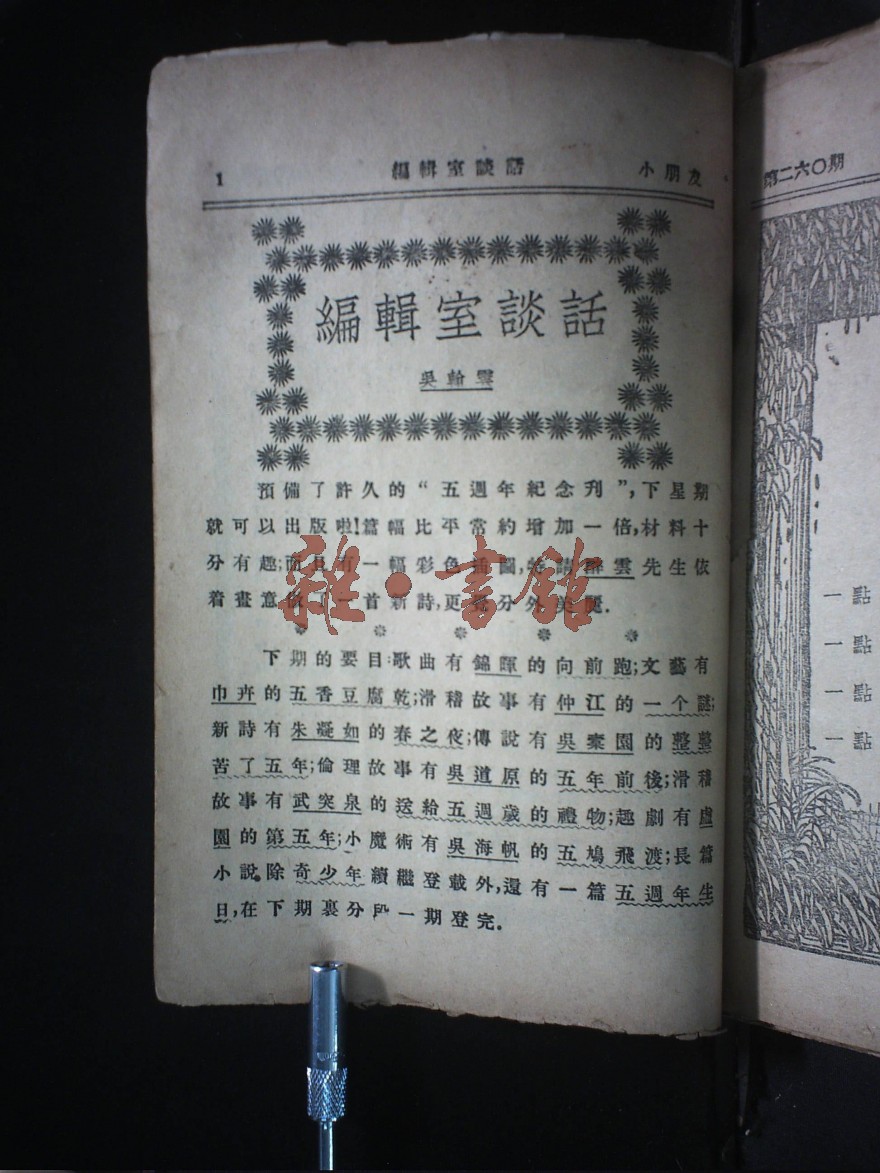 1 編輯室談話 小朋友
編輯室談話
吳翰雲
預備了許久的“五週年紀念刊”,下星期
就可以出版啦!篇幅比平常約增加一倍,材料十
分有趣;而且有一幅彩色插圖,特請 雲先生依
着畫意做 一首新詩,更覺分外美麗.
下期的要目:歌曲有錦暉的向前跑;文藝有
巾卉的五香豆腐乾;滑稽故事有仲江的一个謎;
新詩有朱凝如的春之夜;傳說有吳棄園的整整
苦了五年;倫理故事有吳道原的五年前後;滑稽
故事有武突泉的送給五週歲的禮物;趣劇有虛
園的第五年;小魔術有吳海帆的五鳩飛渡;長篇
小說,除奇少年續繼登載外,還有一篇五週年生
日,在下期裏分段一期登完.
雜·書館
第二六〇期
一 點
一 點
一 點
一 點